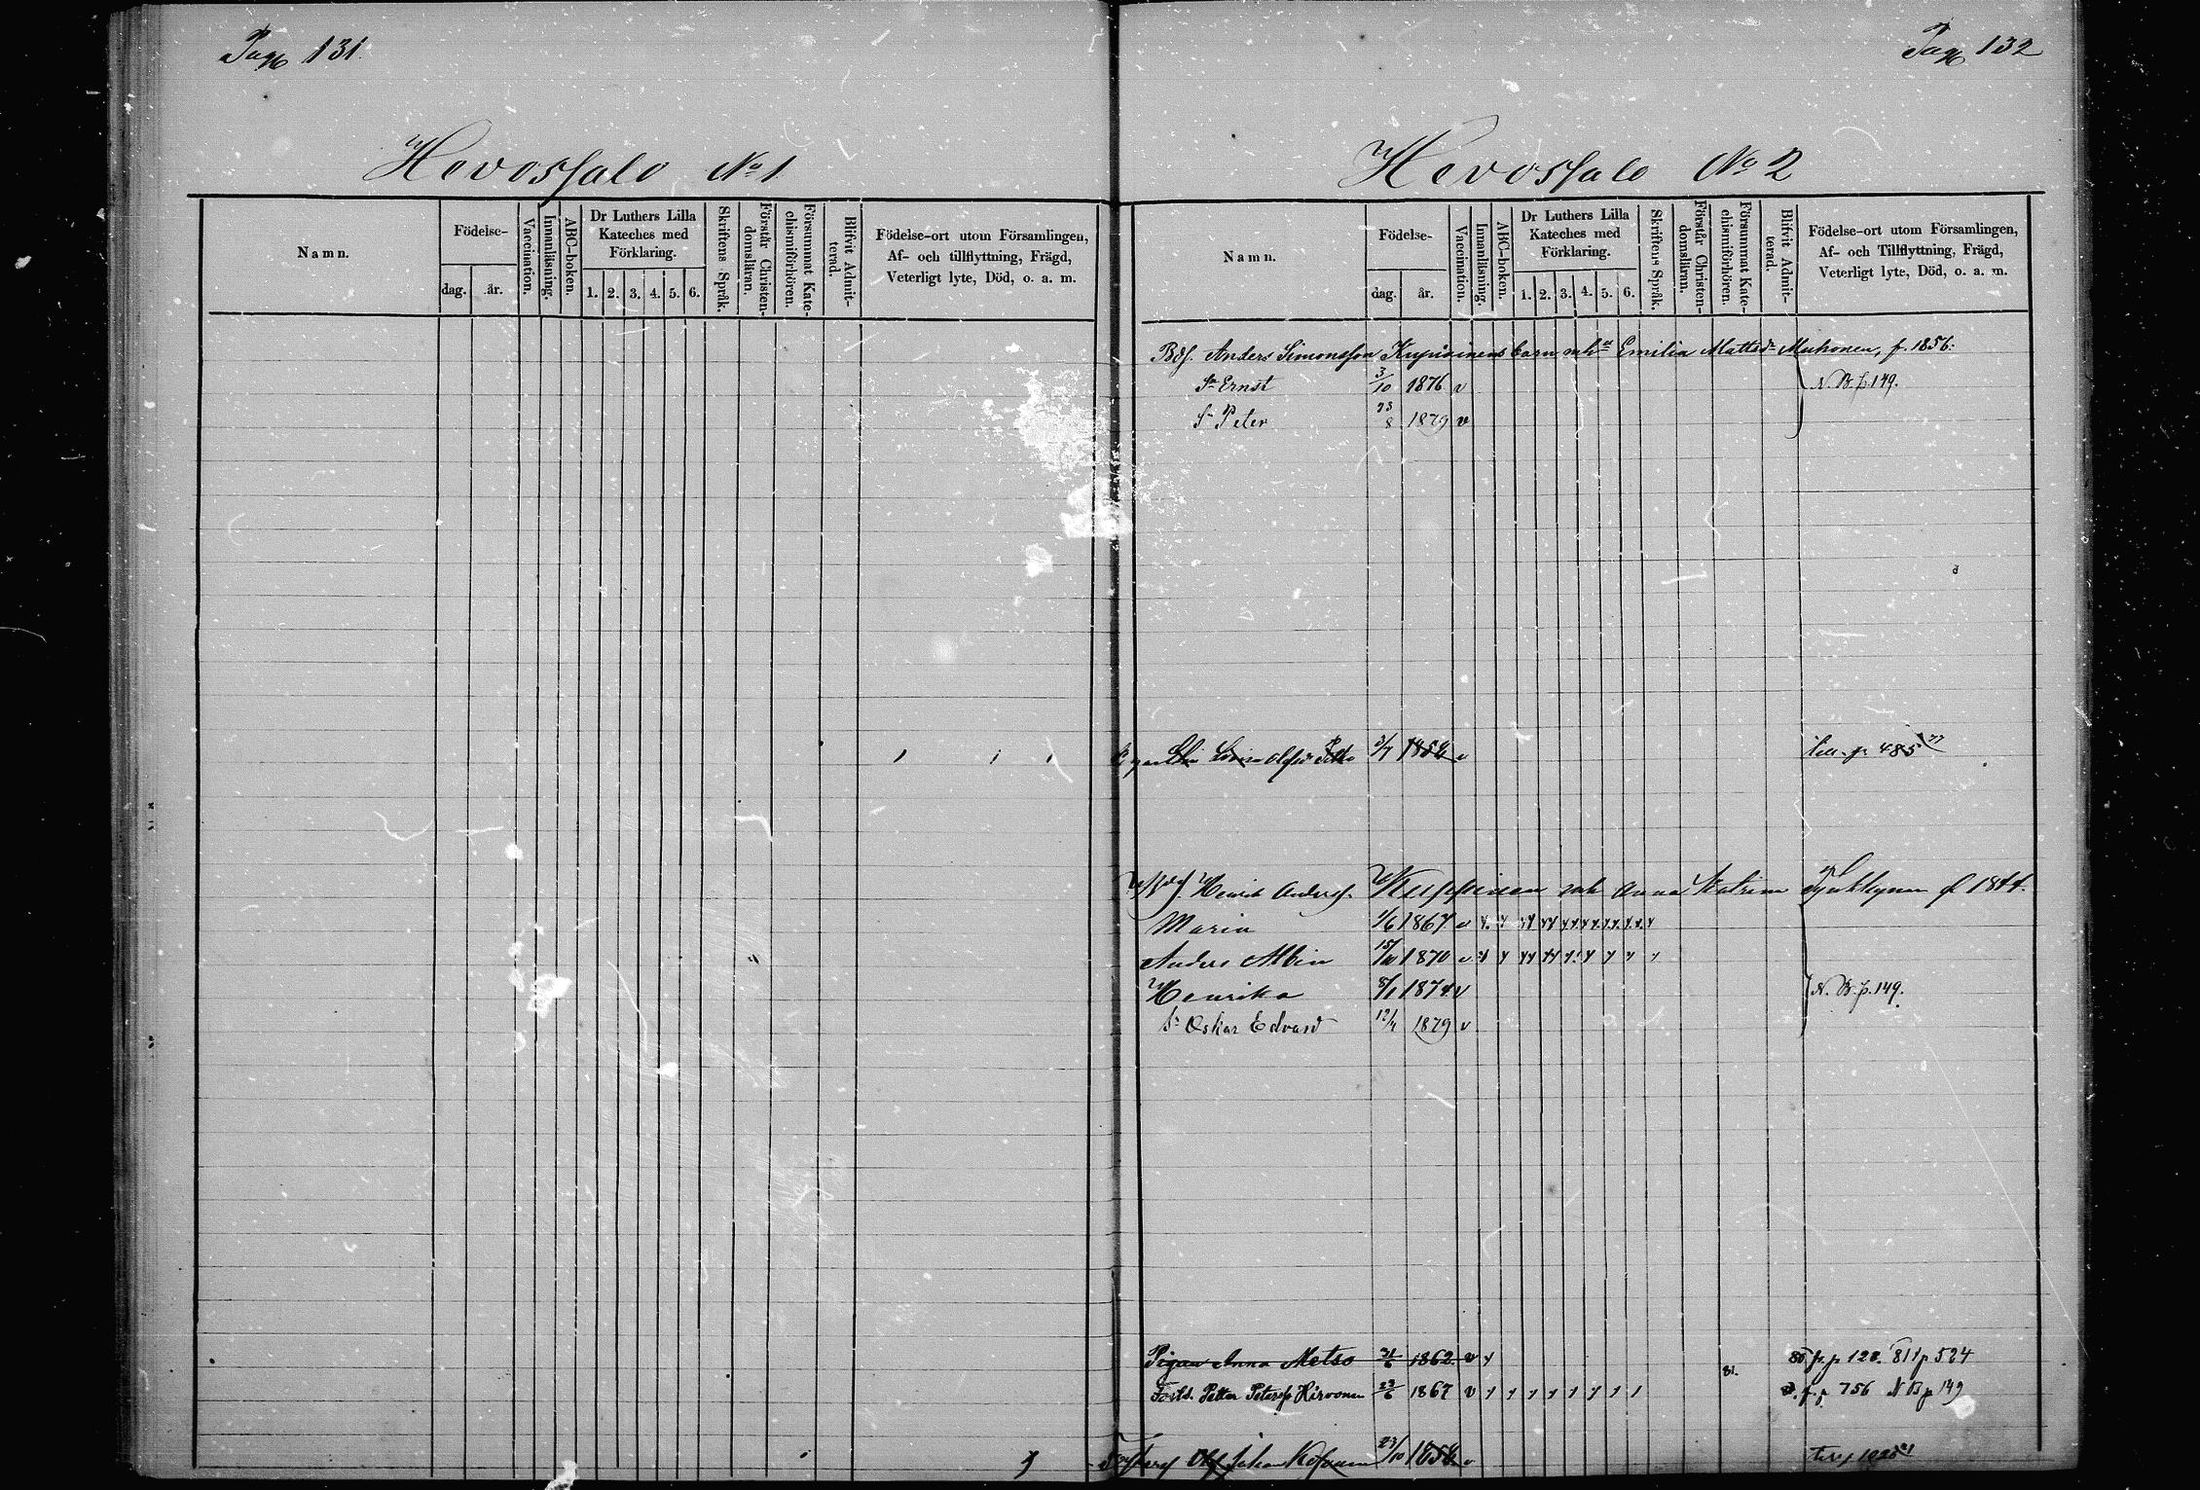 Pag 131.
Hevossalo No 1
Namn.
Födelse-
dag.
år.
Vaccination.
Innanläsning.
ABC-boken.
Dr Luthers Lilla
Kateches med
Förklaring.
1. 2. 3. 4. 5. 6.
Skriftens Språk.
Förstår Christen-
domsläran.
Försummat Kate-
chismiförhören.
Blifvit Admit-
terad.
Födelse-ort utom Församlingen,
Af- och tillflyttning, Frägd,
Veterligt lyte, Död, o. a. m.
Pag 132
Hevossalo No 2
Namn.
Födelse-
dag.
år.
Vaccination.
Innanläsning.
ABC-boken.
Dr Luthers Lilla
Kateches med
Förklaring.
1. 2. 3. 4. 5. 6.
Skriftens Språk.
Förstår Christen-
domsläran.
Försummat Kate-
chismiförhören.
Blifvit Admit-
terad.
Födelse-ort utom Församlingen,
Af- och Tillflyttning, Frägd,
Veterligt lyte, Död, o. a. m.
Anders Simonsson barn Emilia Muhonen, f. 1856.
Sn Ernst 3/10 1876 v N. B. p. 149.
Sn Peter 23/8 1879 v
3/7 1858 v p. 485
Henrik Anders. Kuppinen Anna Katrina f 1844.
Maria 1/6 1867 v
Anders Albin 15/10 1870 v
Henrika 8/1 1874 v N. B. p. 149.
Sn Oskar Edvard 12/4 1879 v
Pigan Anna Metso 21/6 1862. v 80 fr. p 128. 81 t p 524
Petter Petersson Hirvonen 23/6 1867 v 81. p 756 N B p 149
Johan 23/10 1858 v